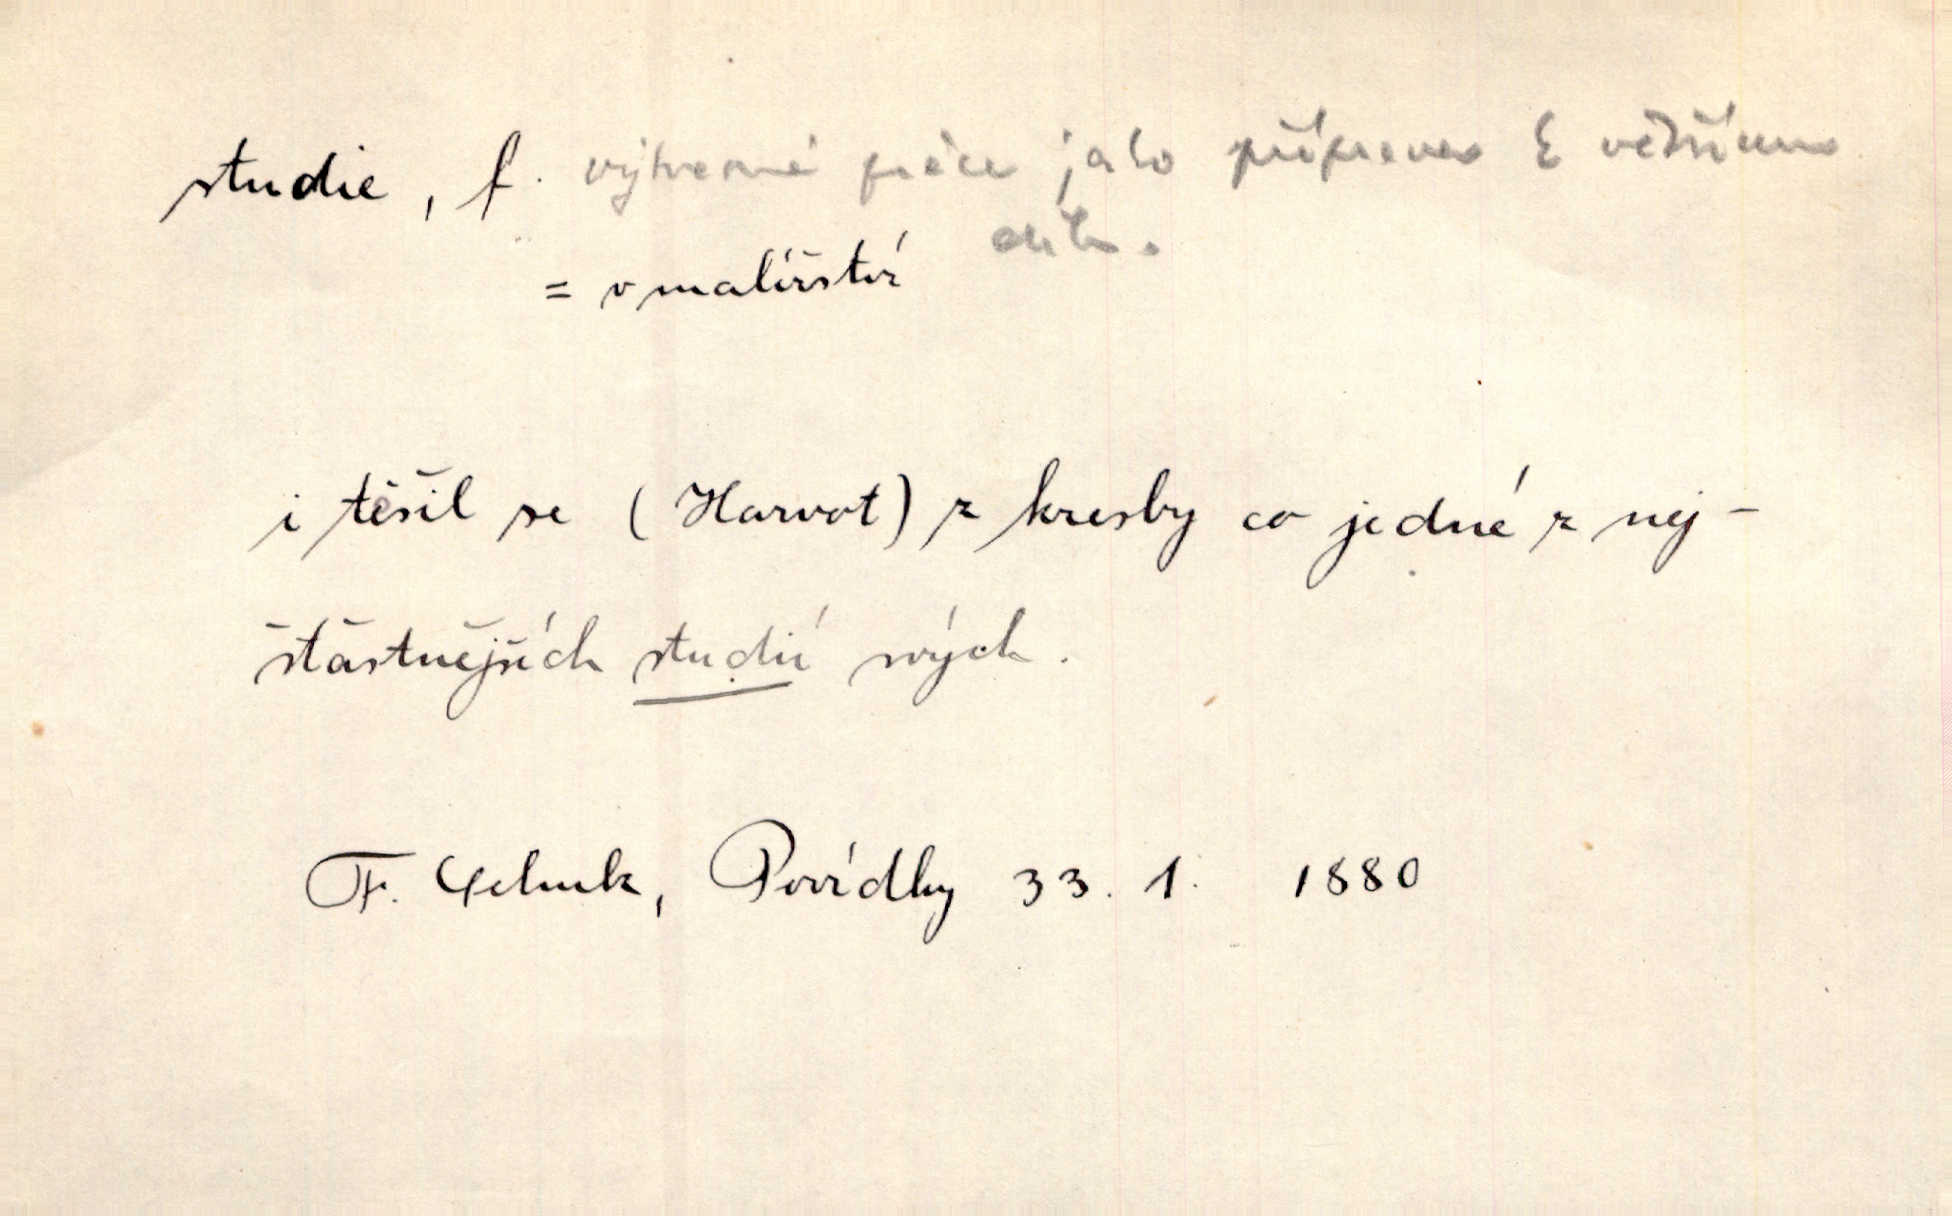 studie, f. výtvarná práce jako příprava k většímu
dílu.
= v malířství
i těšil se (Harvot) z kresby co jedné z nej-
šťastnějších studií svých.
F. Povídky 33. 1. 1880